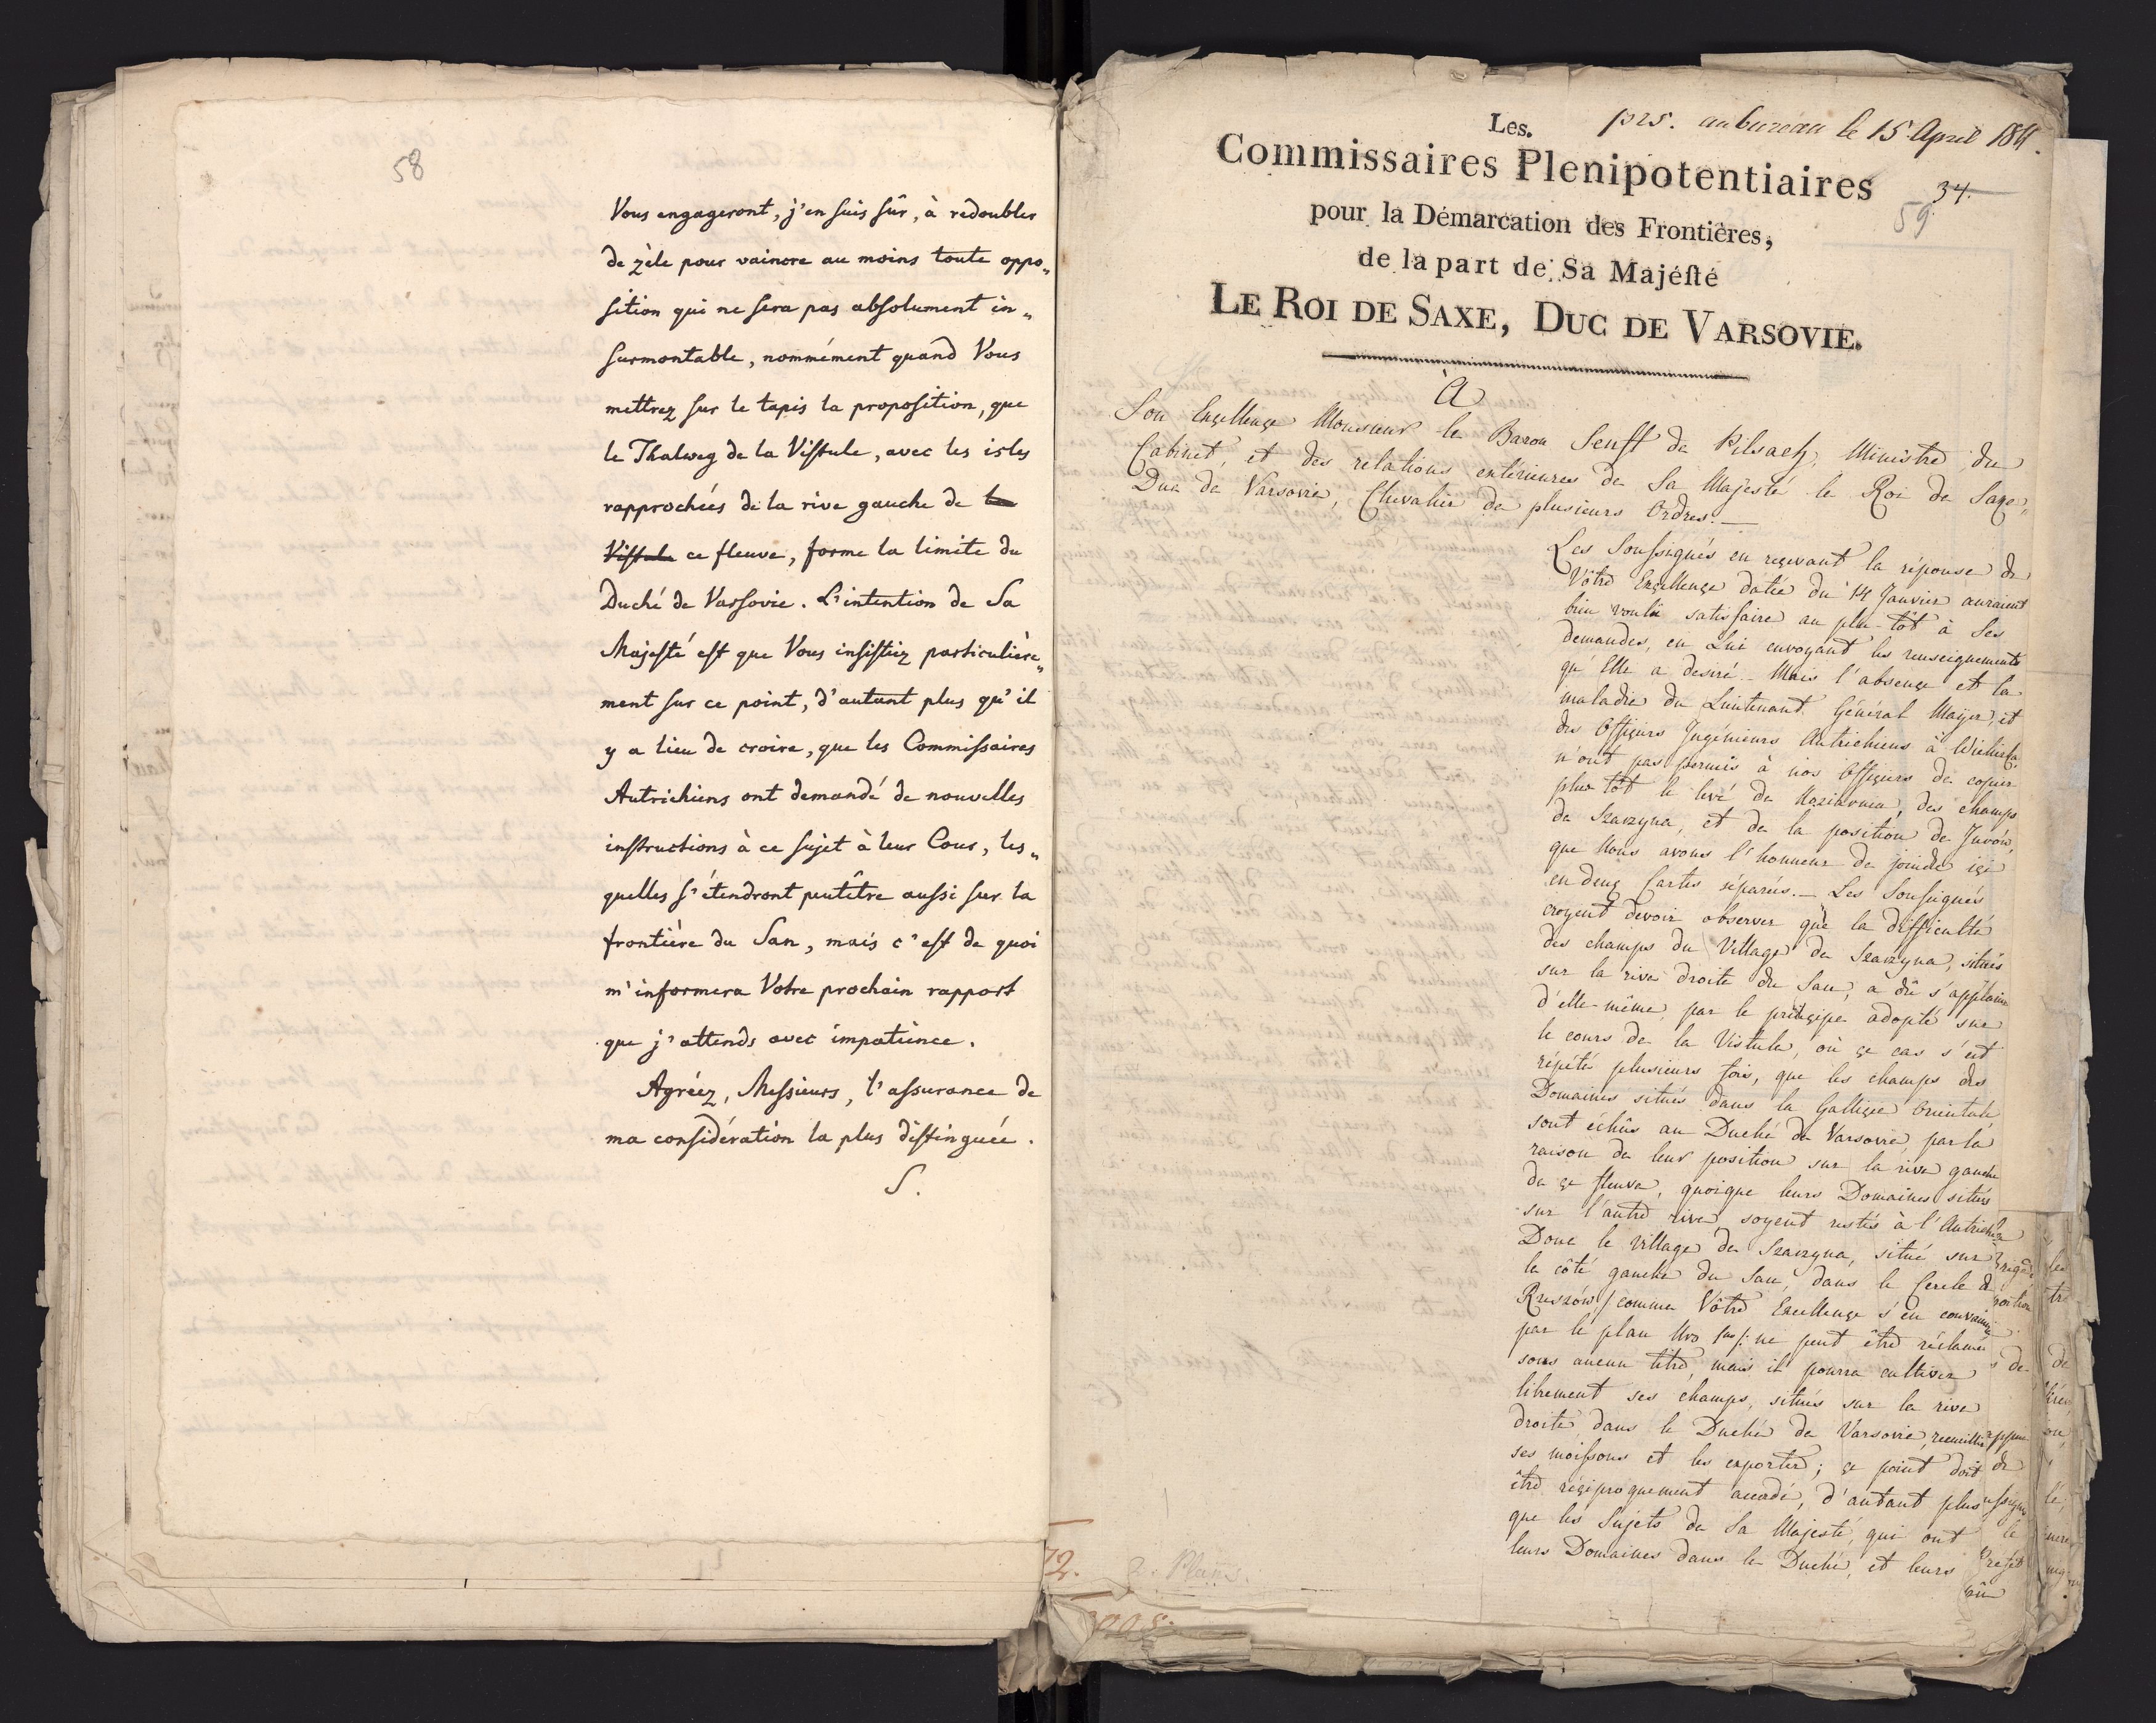 58
Vous engageront, j'en suis sûr, à redoubler
de zèle pour vaincre au moins toute oppo„
sition qui ne sera pas absolument in„
surmontable, nommément quand Vous
mettrez sur le tapis la proposition, que
le Thalweg de la Vistule, avec les isles
rapprochées de la rive gauche de la
Vistule ce fleuve, forme la limite du
Duché de Varsovie. L'intention de Sa
Majesté est que Vous insistiez particulière„
ment sur ce point, d'autant plus qu'il
y a lieu de croire, que les Commissaires
Autrichiens ont demandé de nouvelles
instructions à ce sujet à leur Cour, les„
quelles s'étendront peutêtre aussi sur la
frontière du San, mais c'est de quoi
m'informera Votre prochain rapport
que j'attends avec impatience.
Agréez, Messieurs, l'assurance de
ma considération la plus distinguée.
S.
prs. au bureau le 15 April 1811.
Les.
Commissaires Plenipotentiaires
34.
59
pour la Démarcation des Frontières,
de la part de Sa Majésté
LE ROI DE SAXE, DUC DE VARSOVIE.
À
Son Excellence Monsieur le Baron Senfft de Pilsach, Ministre du
Cabinet, et des relations extérieures de Sa Majesté le Roi de Saxe,
Duc de Varsovie, Chevalier de plusieurs Ordres.—
Les Soussignés en recevant la réponse de
Vôtre Excellence datée du 14 Janvier auraient
bien voulu satisfaire au plu-tôt à Ses
demandes, en Lui envoyant les renseignements
qu'Elle a desiré.— Mais l'absence et la
maladie du Lieutenant Général Mayer, et
des Officiers Ingénieurs Autrichiens à
n'ont pas permis à nos Officiers de copier
plus tôt le levé de des champs
de et de la position de
que Nous avons l'honneur de joindre ici
en deux Cartes séparées.— Les Soussignés
croyent devoir observer que la difficulté
des champs du Village de situés
sur la rive droite du San, a dû s'applanir
d'elle-même, par le principe adopté sur
le cours de la Vistule, où ce cas s'est
répété plusieurs fois, que les champs des
Domaines situés dans la Gallicie Orientale
sont échûs au Duché de Varsovie, par la
raison de leur position sur la rive gauche
de ce fleuve, quoique leurs Domaines situés
sur l'autre rive, soyent restés à l'Autriche
Donc le Village de situé sur
le côté gauche du San, dans le Cercle de
comme Vôtre Excellence s'en convaincra
par le plan Nro ne peut être réclamé
sous aucun titre, mais il pourra cultiver
librement ses champs, situés sur la rive
droite, dans le Duché de Varsovie, recueillir
ses moissons et les exporter; ce point doit
être réciproquement accordé, d'autant plus
que les Sujets de Sa Majesté, qui ont
leurs Domaines dans le Duché, et leurs
2. Plans.